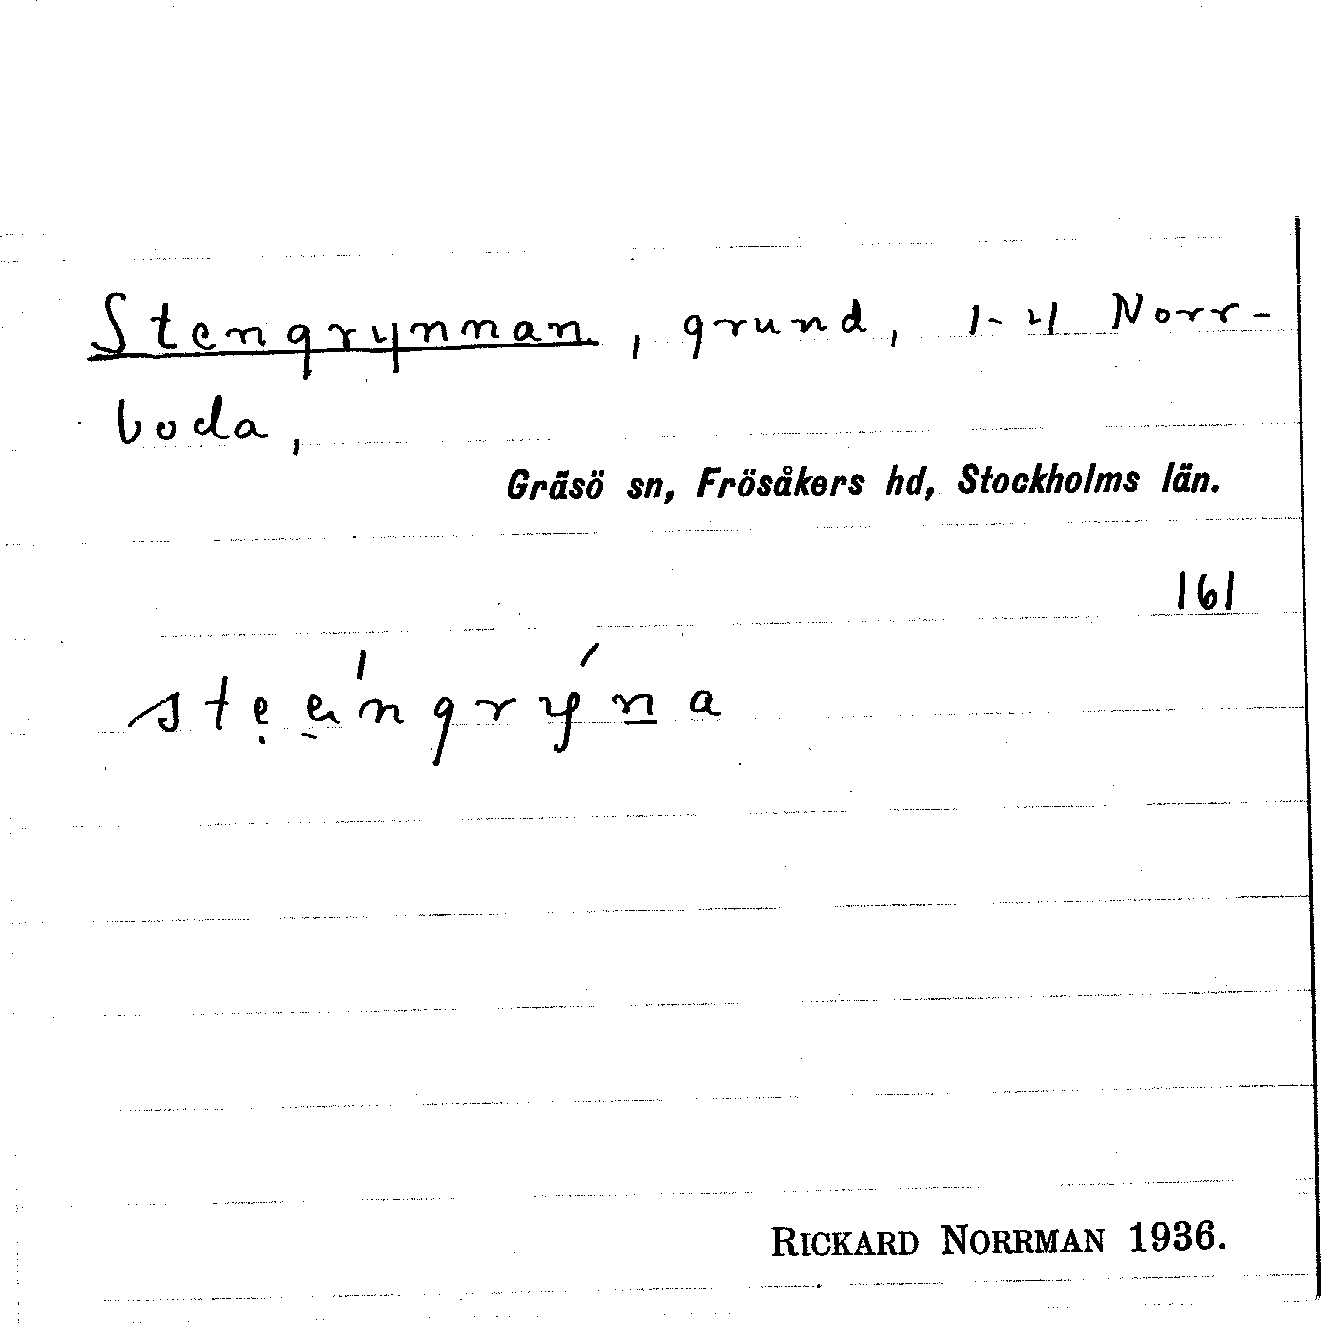 Stengrynnan, grund, 1-4 Norr-
boda,
Gräsö sn, Frösåkers hd, Stockholms län.
161
RICKARD NORRMAN 1936.